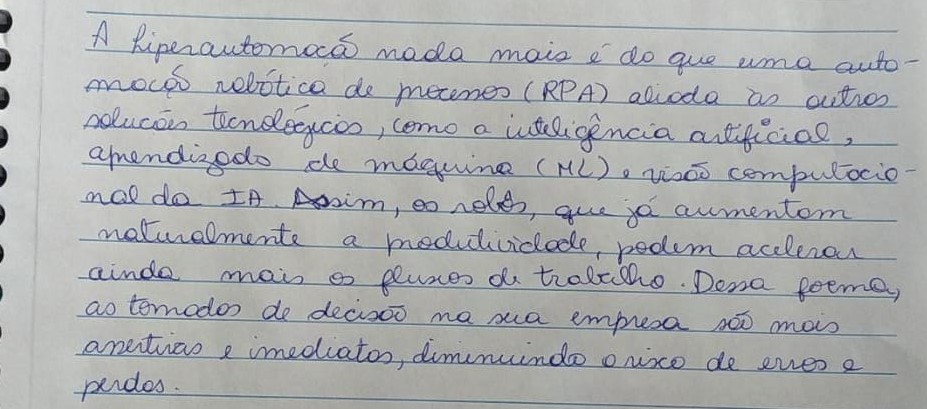 A hiperautomação nada mais é do que uma auto-
mação robótica de processos (RPA) aliada às outras
soluções tecnológicas, como a inteligência artificial,
aprendizado de máquina (ML), visão computacio-
nal da IA. Assim, os robôs, que já aumentam
naturalmente a produtividade, podem acelerar
ainda mais os fluxos de trabalho. Dessa forma,
as tomadas de decisão na sua empresa são mais
assertivas e imediatas, diminuindo o risco de erros e
perdas.